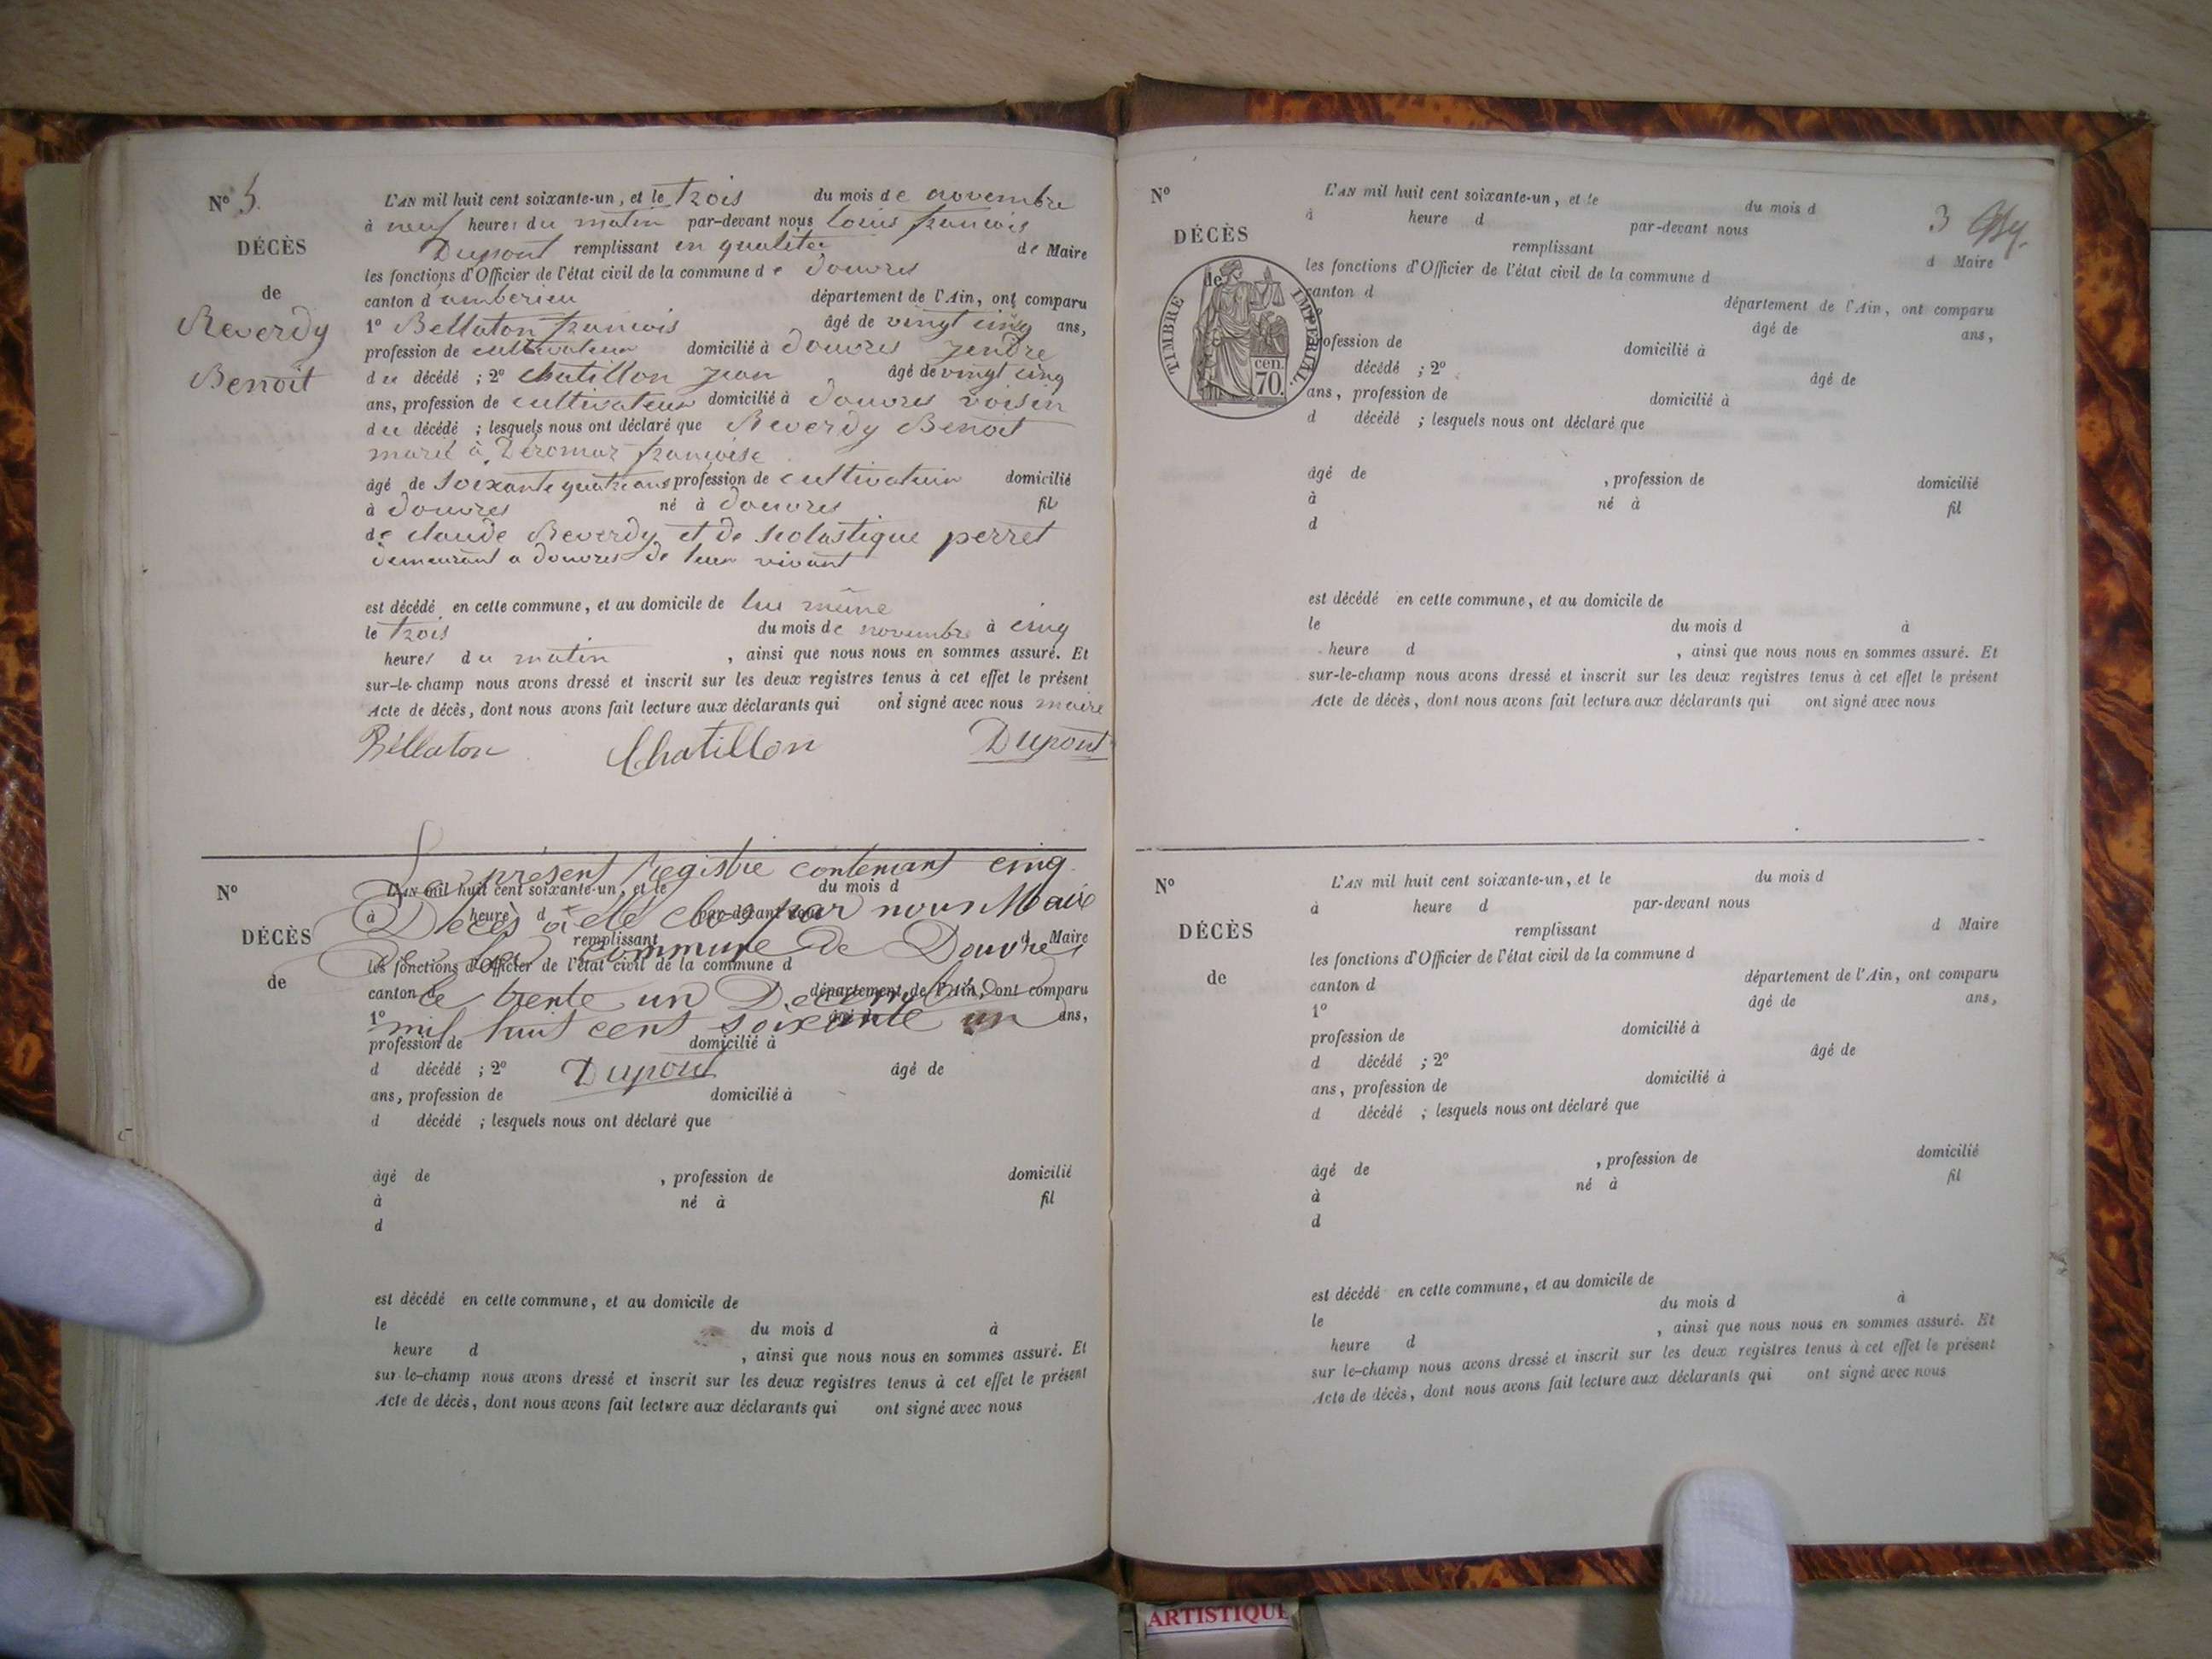 N° 5.
DÉCÈS
de
Reverdy
Benoit
L'AN mil huit cent soixante-un, et le trois du mois de novembre
à neuf heures du matin par-devant nous louis francois
Dupont remplissant en qualité de Maire
les fonctions d'Officier de l'état civil de la commune de douvres
canton d'amberieu département de l'Ain, ont comparu
1° Bellaton francois âgé de vingt cinq ans,
profession de cultivateur domicilié à douvres jendre
du décédé ; 2° chatillon jean âgé de vingt cinq
ans, profession de cultivateur domicilié à douvres voisin
du décédé ; lesquels nous ont déclaré que Reverdy Benoit
marié à francoise
âgé de soixante quatre ans profession de cultivateur domicilié
à douvres né à douvres fils
de claude Reverdy et de scolastique perret
demeurant a douvres de leur vivant
est décédé en cette commune, et au domicile de lui même
le trois du mois de novembre à cinq
heures du matin , ainsi que nous nous en sommes assuré. Et
sur-le-champ nous avons dressé et inscrit sur les deux registres tenus à cet effet le présent
Acte de décès, dont nous avons fait lecture aux déclarants qui ont signé avec nous maire
Bellaton Chatillon Dupont
Le présent registre contenant cinq
Décès a été clos par nous Maire
de la commune de Douvres
le trente un Decembre
mil huit cent soixante un
Dupont
N°
DÉCÈS
de
L'AN mil huit cent soixante-un, et le du mois d
à heure d par-devant nous
remplissant d Maire
les fonctions d'Officier de l'état civil de la commune d
canton d département de l'Ain, ont comparu
1° âgé de ans,
profession de domicilié à
d décédé ; 2° âgé de
ans, profession de domicilié à
d décédé ; lesquels nous ont déclaré que
âgé de , profession de domicilié
à né à fil
d
est décédé en cette commune, et au domicile de
le du mois d à
heure d , ainsi que nous nous en sommes assuré. Et
sur-le-champ nous avons dressé et inscrit sur les deux registres tenus à cet effet le présent
Acte de décès, dont nous avons fait lecture aux déclarants qui ont signé avec nous
N°
DÉCÈS
de
TIMBRE IMPÉRIAL.
cen.
70.
3
L'AN mil huit cent soixante-un, et le du mois d
à heure d par-devant nous
remplissant d Maire
les fonctions d'Officier de l'état civil de la commune d
canton d département de l'Ain, ont comparu
âgé de ans,
profession de domicilié à
décédé ; 2° âgé de
ans, profession de domicilié à
d décédé ; lesquels nous ont déclaré que
âgé de , profession de domicilié
à né à fil
d
est décédé en cette commune, et au domicile de
le du mois d à
heure d , ainsi que nous nous en sommes assuré. Et
sur-le-champ nous avons dressé et inscrit sur les deux registres tenus à cet effet le présent
Acte de décès, dont nous avons fait lecture aux déclarants qui ont signé avec nous
N°
DÉCÈS
de
L'AN mil huit cent soixante-un, et le du mois d
à heure d par-devant nous
remplissant d Maire
les fonctions d'Officier de l'état civil de la commune d
canton d département de l'Ain, ont comparu
1° âgé de ans,
profession de domicilié à
d décédé ; 2° âgé de
ans, profession de domicilié à
d décédé ; lesquels nous ont déclaré que
âgé de , profession de domicilié
à né à fil
d
est décédé en cette commune, et au domicile de
le du mois d à
heure d , ainsi que nous nous en sommes assuré. Et
sur le-champ nous avons dressé et inscrit sur les deux registres tenus à cet effet le présent
Acte de décès, dont nous avons fait lecture aux déclarants qui ont signé avec nous
ARTISTIQUE